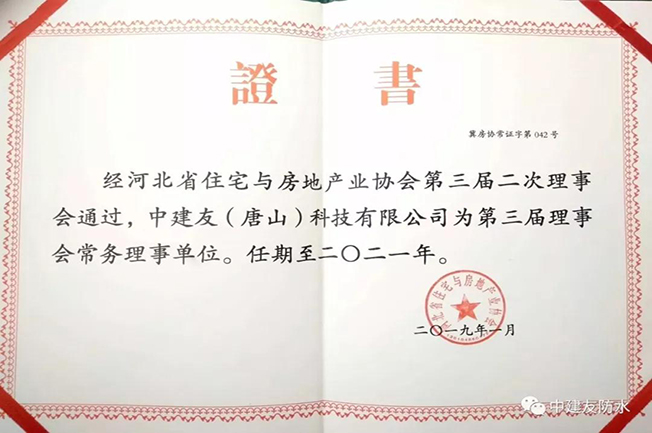 證書
冀房协常证字第042号
经河北省住宅与房地产业协会第三届二次理事
会通过，中建友（唐山）科技有限公司为第三届理事
会常务理事单位。任期至二〇二一年。
河北省住宅与房地产业协会
二〇一九年一月
中建友防水